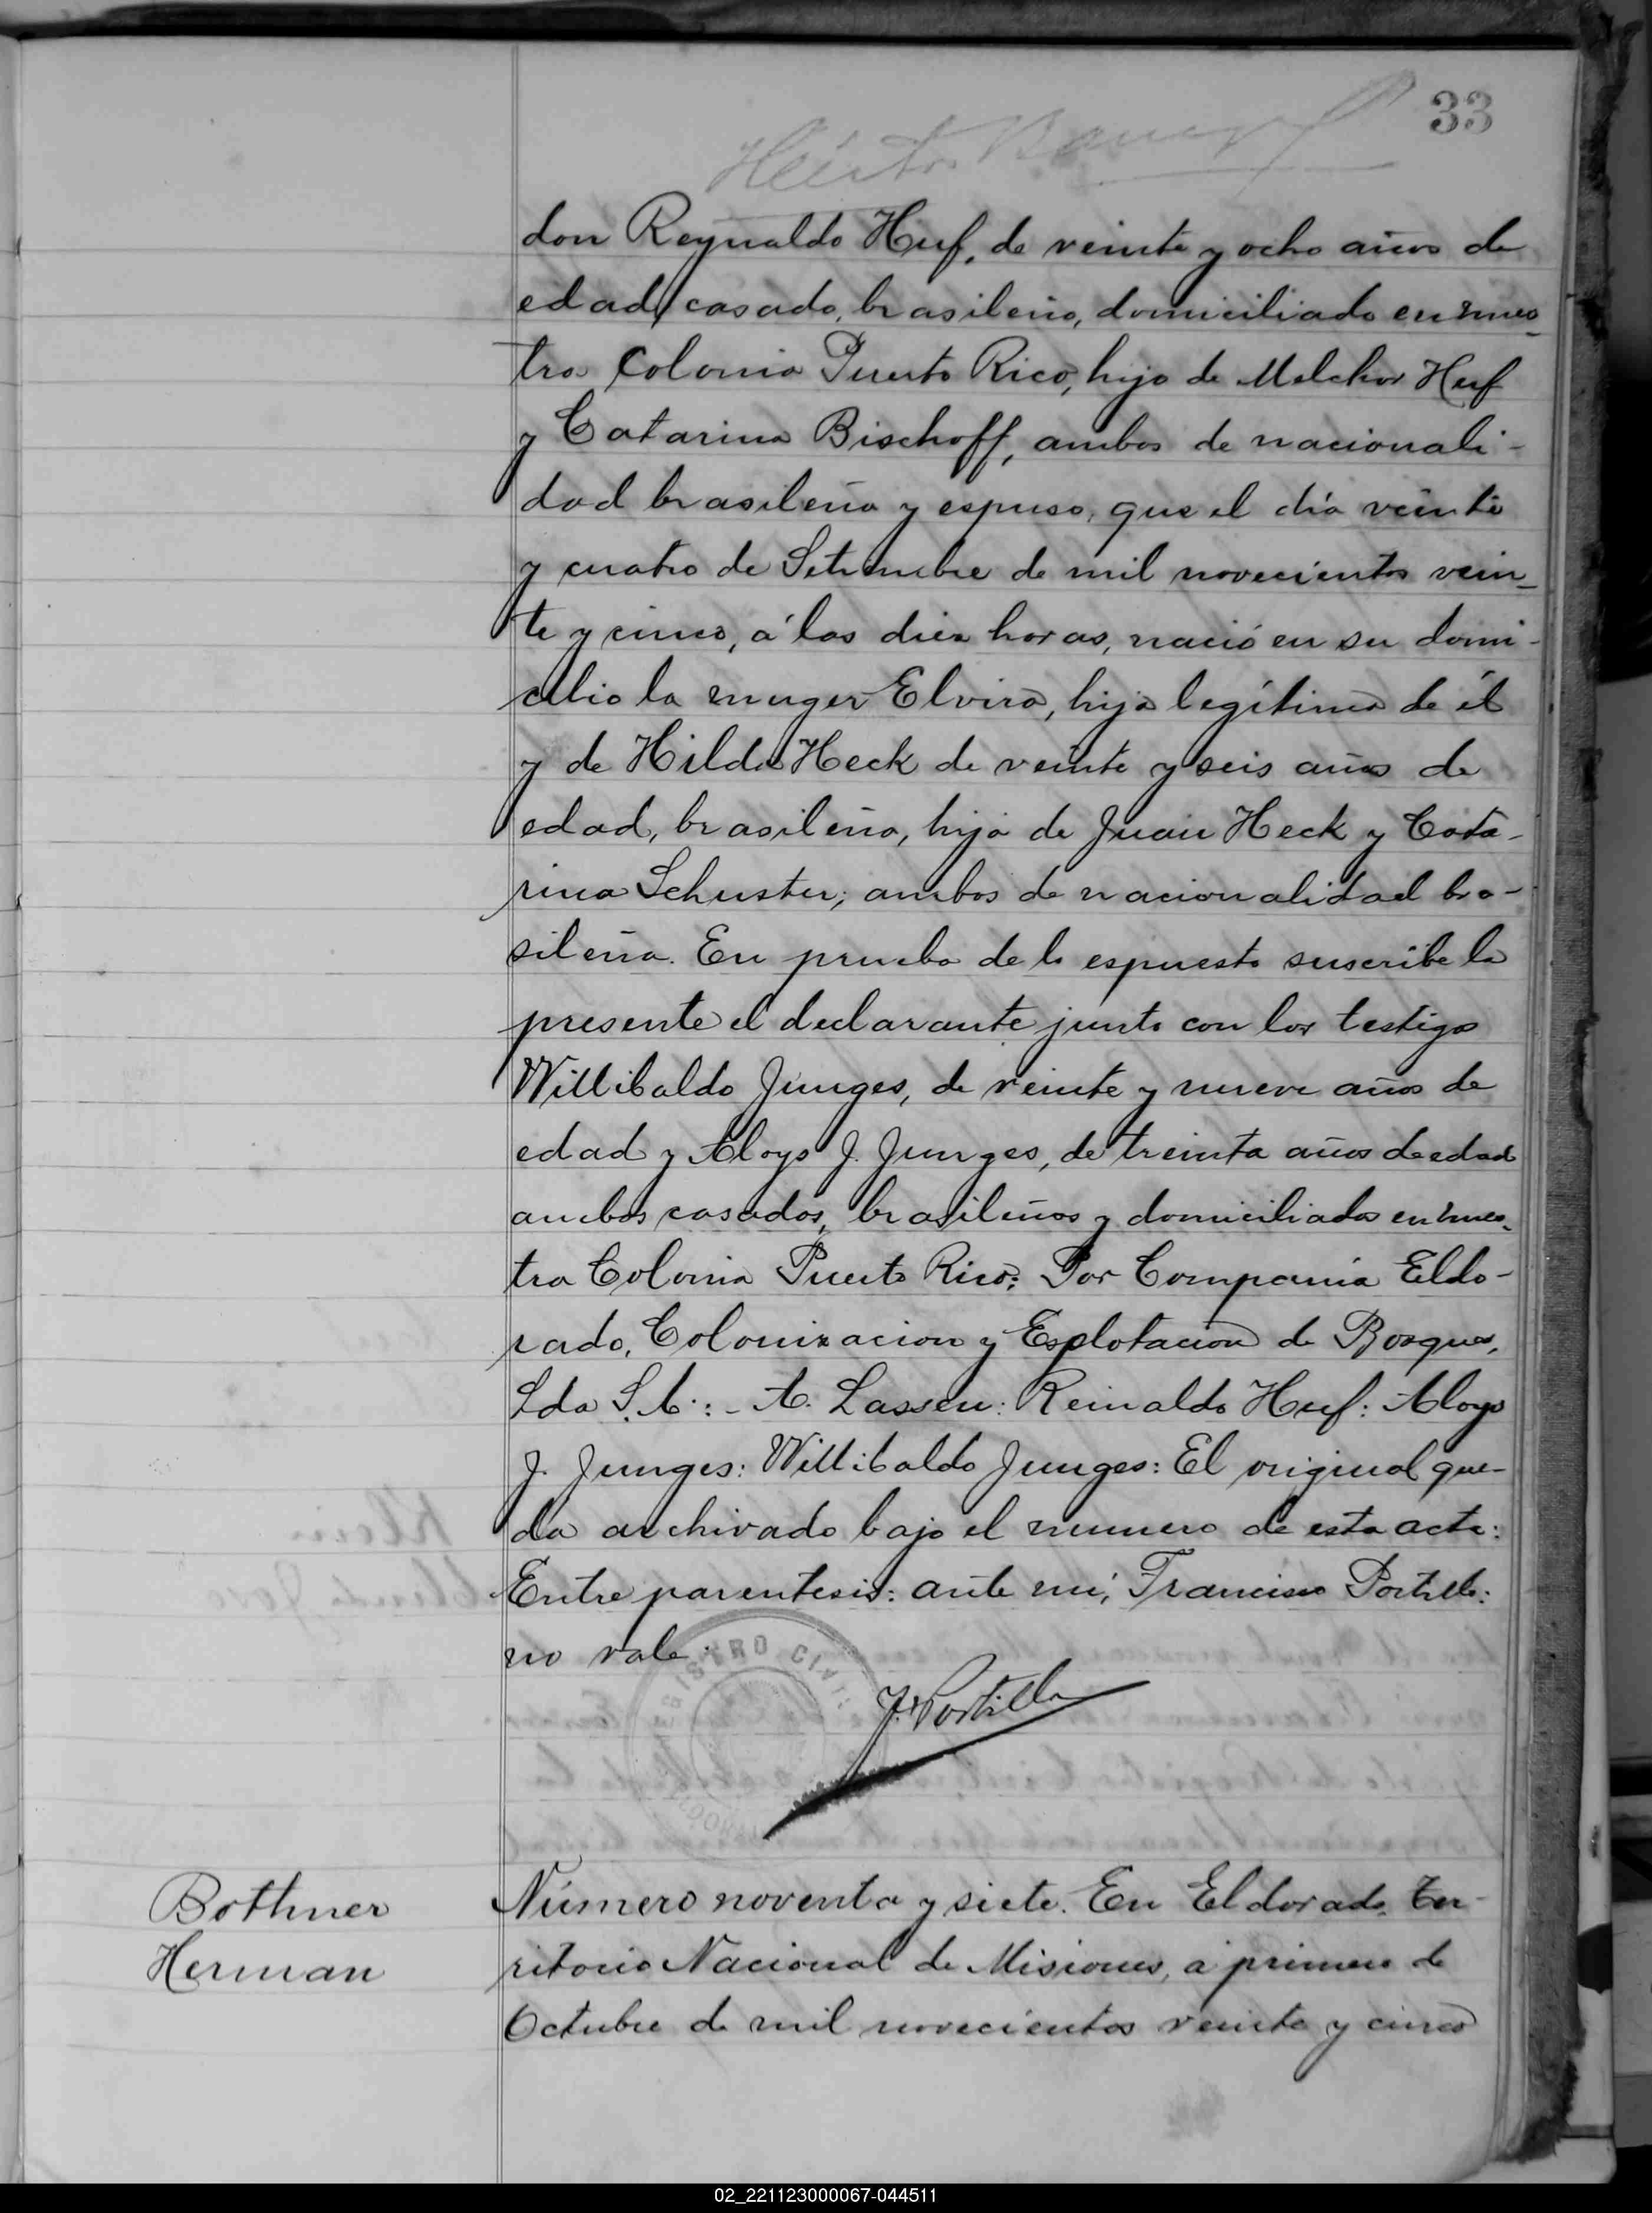 33
don Reynaldo Huf, de veinte y ocho años de
edad, casado, brasileño, domiciliado en nues-
tra Colonia Puerto Rico, hijo de Melchor Huf
y Catarina Bischoff, ambos de nacionali-
dad brasileña y espuso, que el día veinte
y cuatro de Setiembre de mil novecientos vein-
te y cinco, á las diez horas, nació en su domi-
cilio la muger Elvira, hija legítima de él
y de Hilda Heck de veinte y seis años de
edad, brasileña, hija de Juan Heck y Cata-
rina Schuster; ambos de nacionalidad bra-
sileña. En prueba de lo espuesto suscribe la
presente el declarante junto con los testigos
Willibaldo Junges, de veinte y nueve años de
edad y Aloys J. Junges, de treinta años de edad
ambos casados, brasileños y domiciliados en nues-
tra Colonia Puerto Rico: Por Compañia Eldo-
rado, Colonizacion y Esplotacion de Bosques,
Lda S.A.:- A. Lassen: Reinaldo Huf: Aloys
J. Junges: Willibaldo Junges: El original que-
da archivado bajo el numero de esta acta:
Entre parentesis: ante mi, Francisco Portillo:
no vale.
REGISTRO CIVIL
F. Portillo
Bothner
Herman
Número noventa y siete. En Eldorado, Ter-
ritorio Nacional de Misiones, á primero de
Octubre de mil novecientos veinte y cinco
02_221123000067-044511